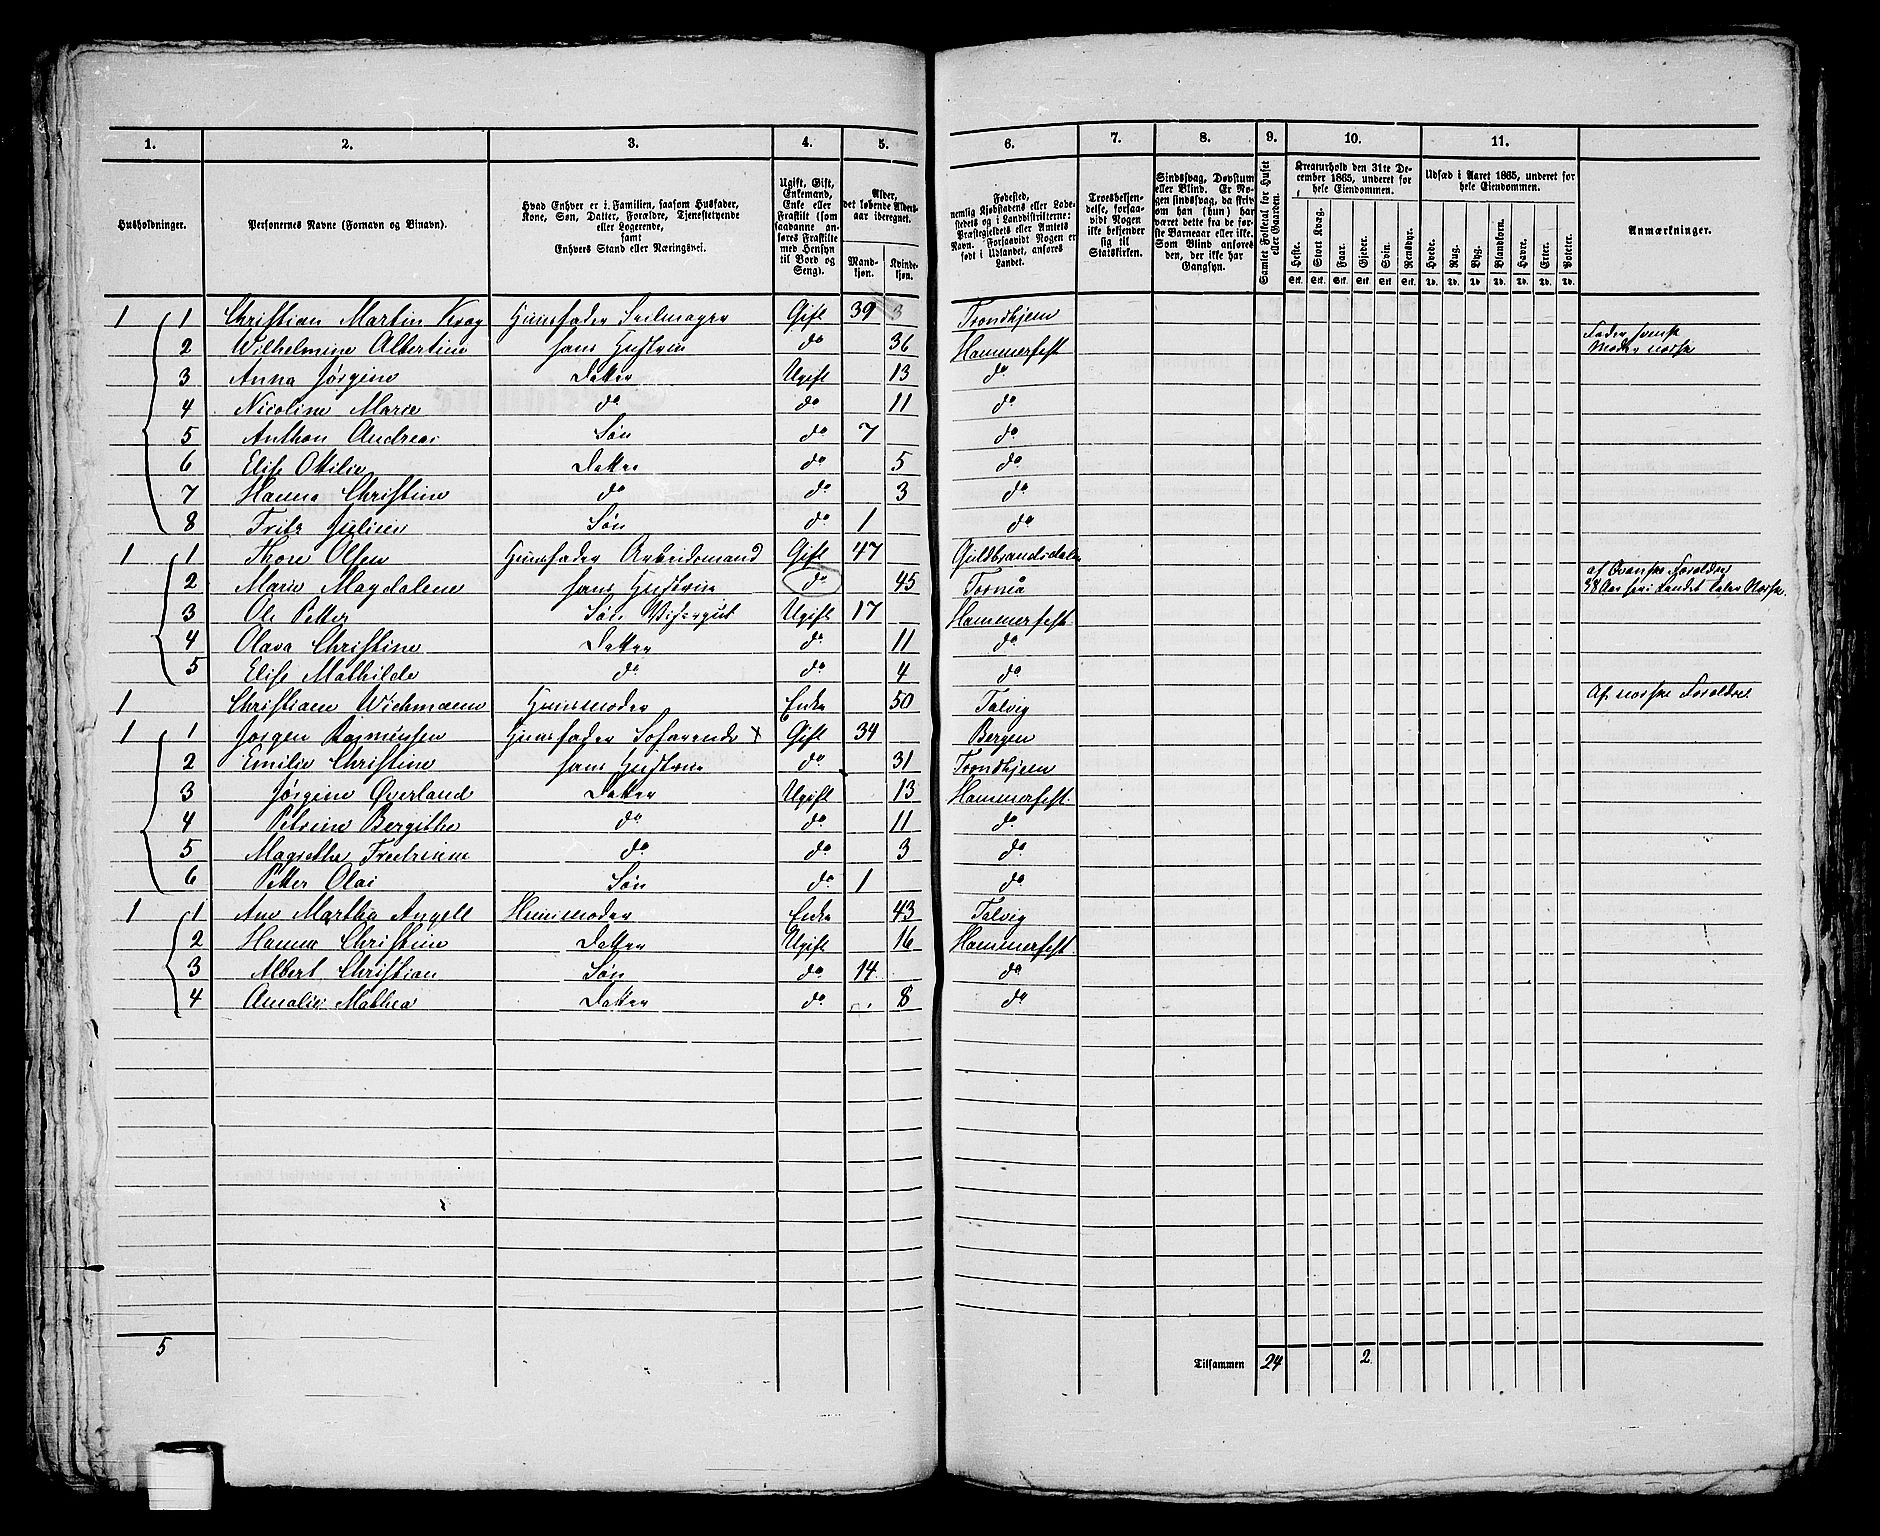 1. 2. 3. 4. 5. 6. 7. 8. 9. 10. 11.
Husholdninger.
Personernes Navne (Fornavn og Binavn).
Hvad Enhver er i Familien, saasom Husfader,
Kone, Søn, Datter, Forældre, Tjenestetyende
eller Logerende,
samt
Enhvers Stand eller Næringsvei.
Ugift, Gift,
Enkemand,
Enke eller
Fraskilt (som
saadanne an-
føres Fraskilte
med Hensyn
til Bord og
Seng).
Alder,
det løbende Alders-
aar iberegnet.
Mand-
kjøn.
Kvinde-
kjøn.
Fødested,
nemlig Kjøbstadens eller Lade-
stedets og i Landdistrikterne:
Præstegjeldets eller Amtets
Navn. Forsaavidt Nogen er
født i Udlandet, anføres
Landet.
Troesbekjen-
delse, forsaa-
vidt Nogen
ikke bekjender
sig til
Statskirken.
Sindssvag, Døvstum
eller Blind. Er No-
gen sindssvag, da skriv
om han (hun) har
været dette fra de før-
ste Barneaar eller ikke.
Som Blind anføres
den, der ikke har
Gangsyn.
Samlet Folketal for Huset
eller Gaarden.
Kreaturhold den 31te De-
cember 1865, underet for
hele Eiendommen.
Heste. Stort Kvæg. Faar. Gjeder. Svin. Rensdyr.
Stk. Stk. Stk. Stk. Stk. Stk.
Udsæd i Aaret 1865, underet for
hele Eiendommen.
Hvede. Rug. Byg. Blandkorn. Havre. Erter. Poteter.
Td. Td. Td. Td. Td. Td. Td.
Anmærkninger.
1 1 Christian Martin Krog Huusfader Seilmager Gift 39 Trondhjem
2 Wilhelmine Albertine hans Hustru do 36 Hammerfest Fader svensk Moder norsk
3 Anna Jørgine Datter Ugift 13 do
4 Nicoline Marie do do 11 do
5 Anthon Andreas Søn do 7 do
6 Elise Otilie Datter do 5 do
7 Hanna Christine do do 3 do
8 Fritz Julius Søn do 1 do
1 1 Thore Olsen Huusfader Arbeidsmand Gift 47 Guldbrandsdalen
2 Marie Magdalene hans Hustrue do 45 Torneå af Qvanske Foroldre
3 Ole Petter Søn Visergut Ugift 17 Hammerfest
4 Olava Christine Datter do 11 do
5 Elise Mathilde do do 4 do
1 Christiane Wichmann Huusmoder Enke 50 Talvig Af norske Foroldre
1 1 Jørgen Rasmussen Huusfader Søfarende x Gift 34 Bergen
2 Emilie Christine hans Hustrue do 31 Trondhjem
3 Jørgine Øverland Datter Ugift 13 Hammerfest
4 Petrine Bergithe do do 11 do
5 Magrethe Fredrinne do do 3 do
6 Petter Olai Søn do 1 do
1 1 Ane Martha Angell Huusmoder Enke 43 Talvig
2 Hanna Christine Datter Ugift 16 Hammerfest
3 Albert Christian Søn do 14 do
4 Amalie Mathea Datter do 8 do
5 Tilsammen 24 2